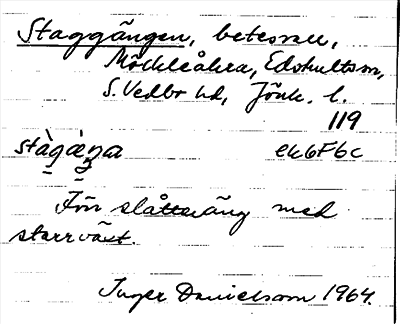 Staggången, betesvall,
Möckleåkra, Edshultsm,
S. Vedbo hd, Jönk. l.
119
stàgàŋa ek6F6c
Förr slåtteräng med
starrväxt.
Inger Danielsson 1964.